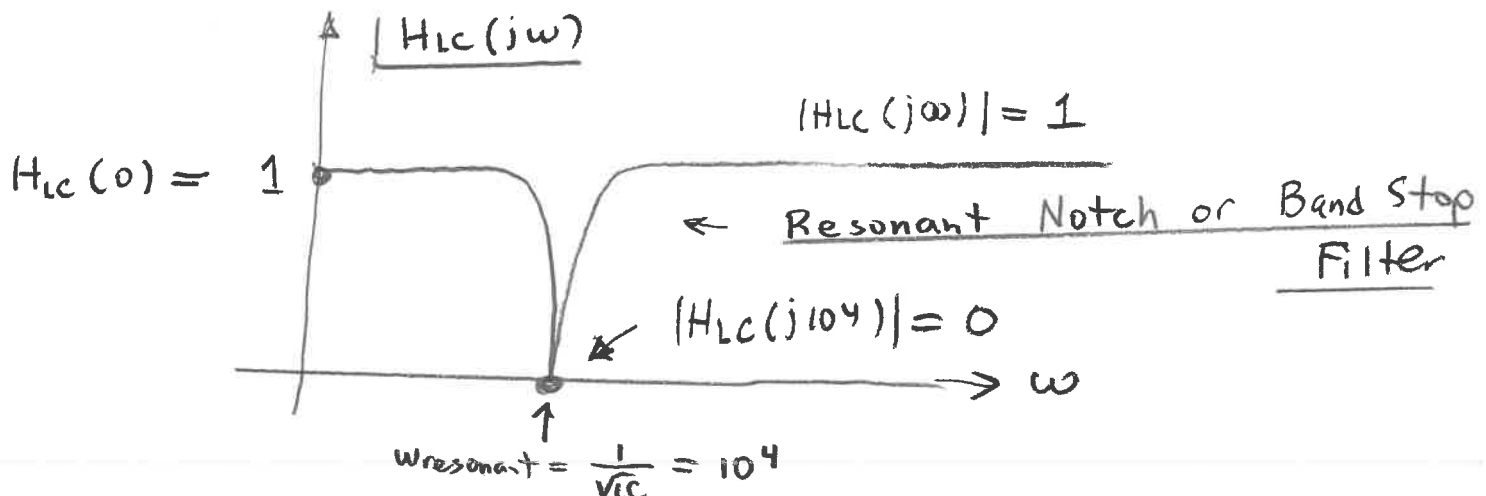 |HLC(jω)
|HLC(j∞)| = 1
HLC(0) = 1
← Resonant Notch or Band Stop
Filter
|HLC(j10⁴)| = 0
→ ω
↑
ωresonant = 1/√LC = 10⁴